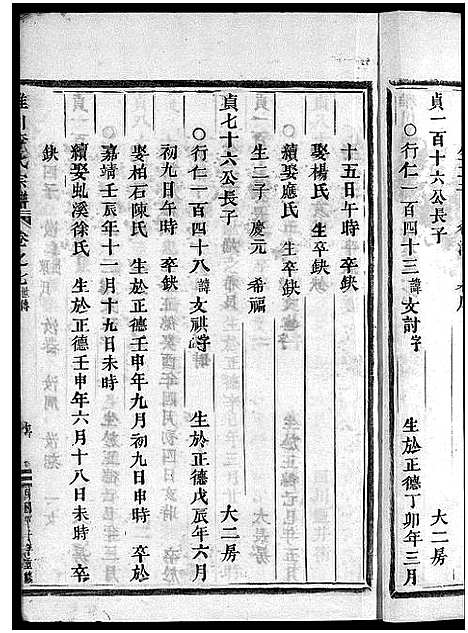 貞一百十六公長子
大二房
○行仁一百四十三諱文討字 生於正德丁卯年三月
十五日午時卒缺
娶楊氏 生卒缺
續娶應氏 生卒缺
生二子 慶元 希福
貞七十六公長子
大二房
○行仁一百四十八諱文祺 生於正德戊辰年六月
初九日午時 卒缺
娶柏石陳氏 生於正德壬申年九月初九日申時 卒於
嘉靖壬辰年十一月十九日未時
續娶虬溪徐氏 生於正德壬申年六月十八日未時 卒
缺
川李氏宗譜 卷之七